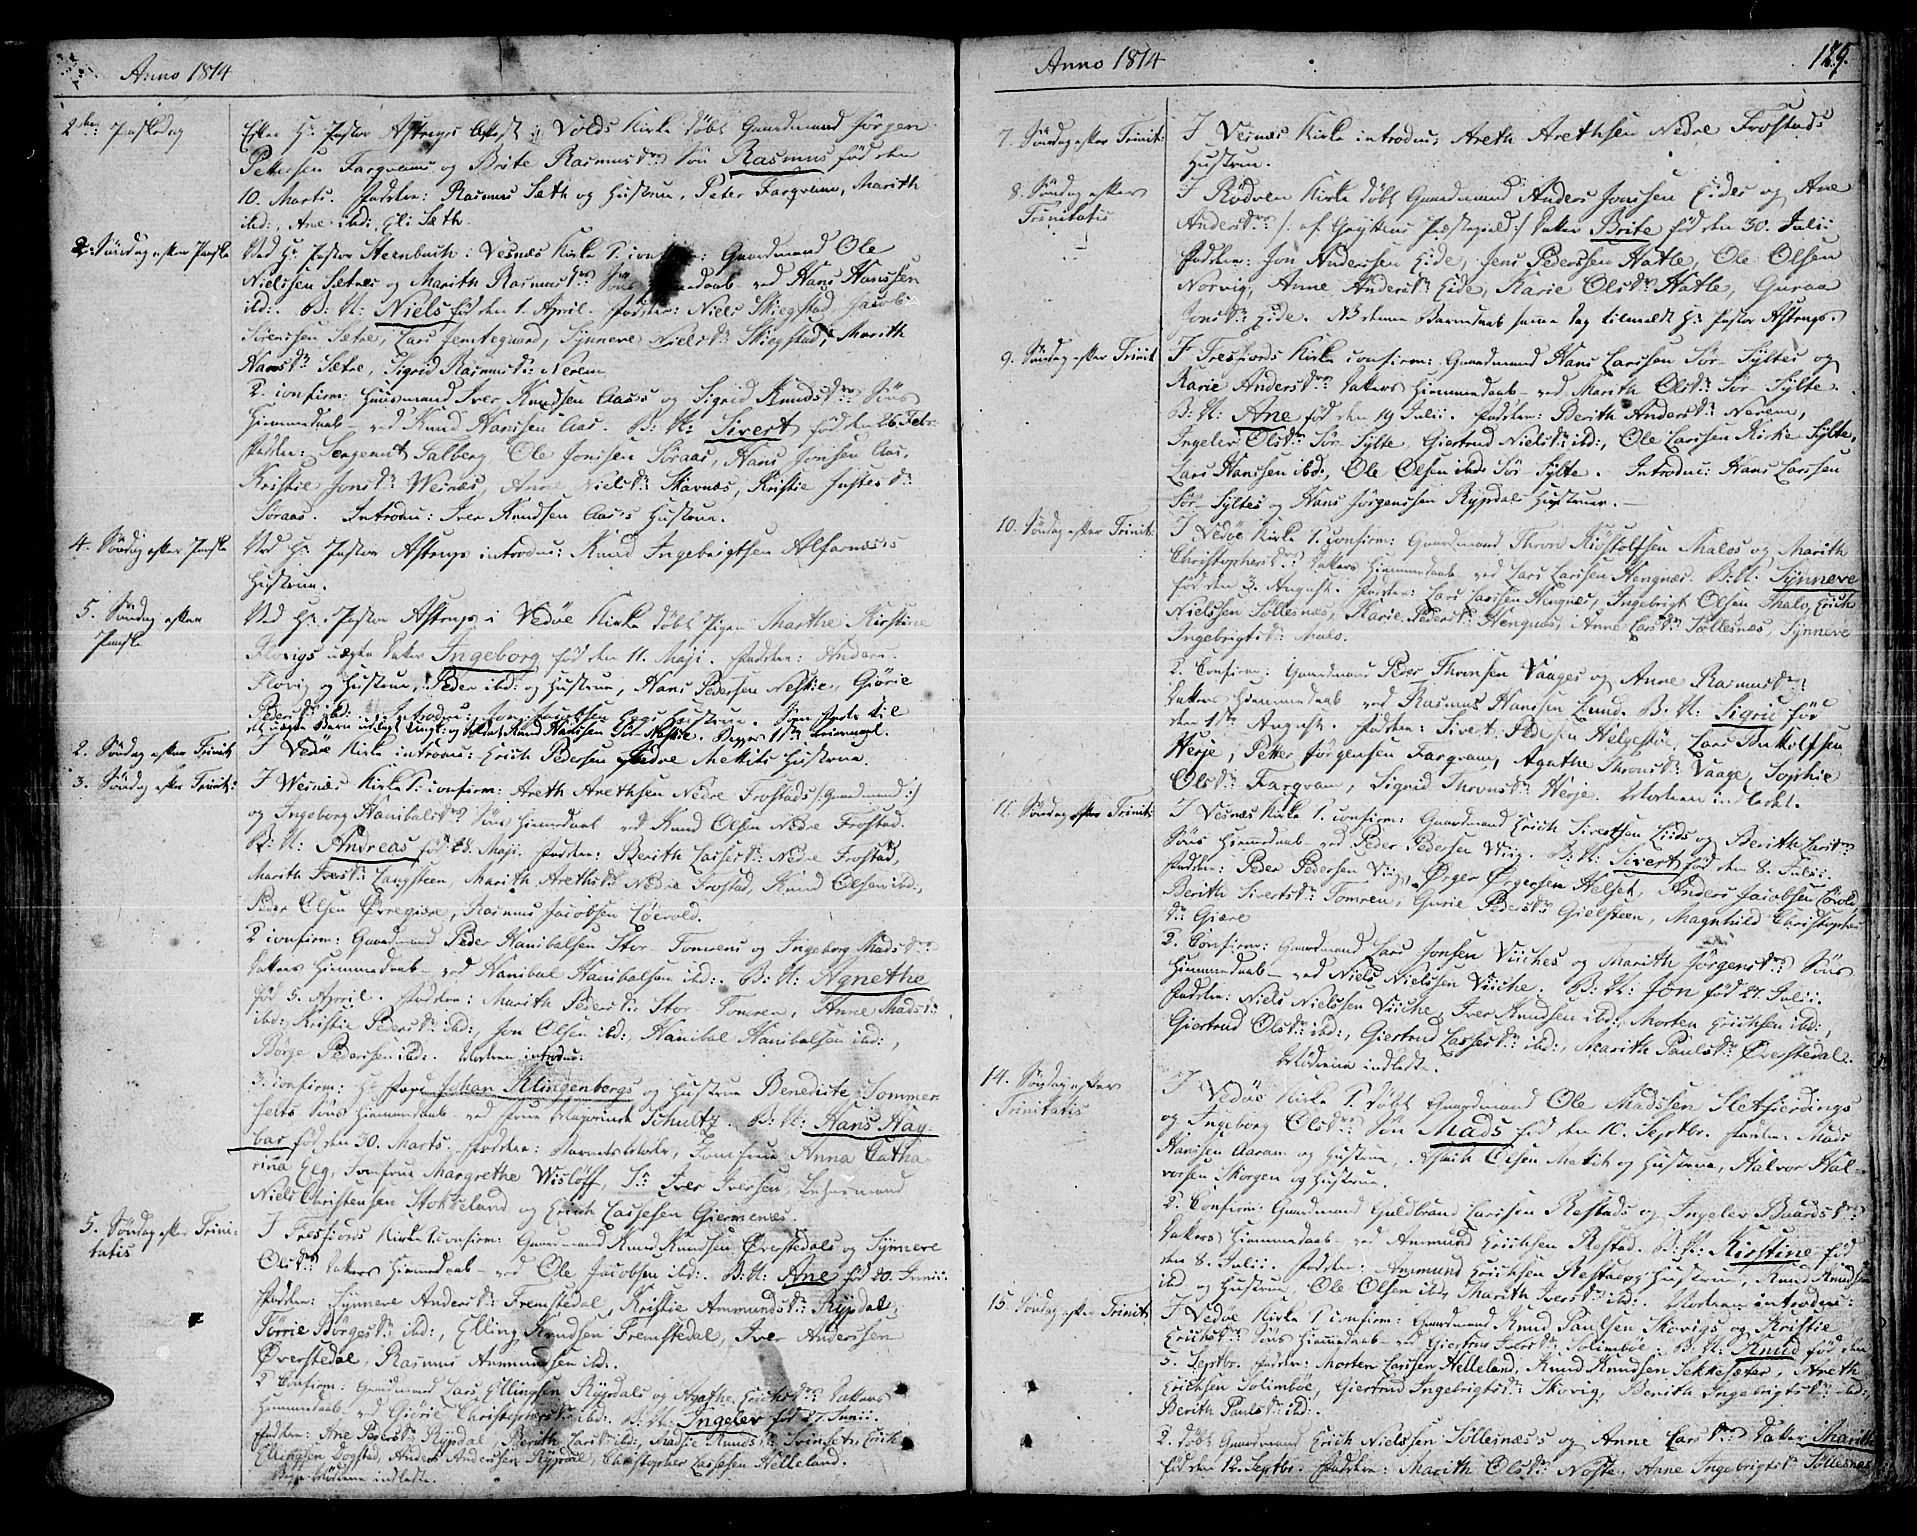 Anno 1814
2den Paaskedag
Efter Hr. Pastor Astrups Attest i Volds Kirke døbt Gaardmand Jörgen
Pettersen Fargvams og Brite Rasmusdrs Sön Rasmus föd den
10. Marts. Fadder: Rasmus Sæth og Hustrue, Peter Fargvam, Marith
ibd:, Ane ibd: Eli Sæth.
2. Söndag efter Paaske
Ved Hr. Pastor Sternbuch i Vesnæs Kirke 1. confirm: Gaardmand Ole
Nielssen Sætres og Marith Rasmusdrs Söns daab ved Hans Hanssen
ibd. B: N: Niels föd den 1. April. Fadder: Niels Skiegstad, Jacob
Sörenssen Sætre, Lars Jemtegaard, Synneve Nielsdr: Skiegstad, Marith
Hansdr: Sætre, Sigrid Rasmusdr: Nerem
2. confirm: Huusmand Iver Knudsen Aas's og Sigrid Knudsdrs Söns
Hiemmedaab ved Knud Hanssen Aas. B: N: Sivert föd den 26 Febr.
Fadder: Sergeant Salberg, Ole Jonssen Söraas, Hans Jonssen Aas,
Kristie Jonsdr: Wesnæs, Anne Nielsdr: Skavnæs, Kristie Justesdr:
Söraas. Introdu: Iver Knudsen Aas's Hustrue.
4. Söndag efter Paaske
Ved Hr. Pastor Astrup introdu: Knud Ingebrigtsen Alfarnæs's
Hustrue.
5. Söndag efter
Paaske
Ved Hr. Pastor Astrup i Vedöe Kirke döbt Pigen Marthe Kirstine
Flovigs uægte Datter Ingeborg föd den 11. Maji. Fadder: Anders
Flovig og Hustrue, Peder ibd: og Hustrue, Hans Pedersen Neskie, Giörie
Pedersdr: ibd:. Introdu: Hustrue.
2. Söndag efter Trinit:
I Vedöe Kirke introdu: Erich Pedersen Mekits Hustrue.
3. Söndag efter Trinit:
I Wesnæs Kirke 1. confirm: Areth Arethsen Nedre Frostads /:Gaardmand:/
og Ingeborg Hanibalsdrs Söns Hiemmedaab ved Knud Olsen Nedre Frostad.
B: N: Andreas föd 28. Maji. Fadder: Berith Lassesdr: Nedre Frostad,
Marith Iversdr: Langsteen, Marith Arethsdr: Nedre Frostad, Knud Olsen ibd:,
Peder Olsen Øvregiære, Rasmus Jacobsen Löevold.
2 confirm: Gaardmand Peder Hanibalsen Stor Tomrens og Ingeborg Madsdrs
Datters Hiemmedaab ved Hanibal Hanibalsen ibd:. B: N: Agnethe
föd 5. April. Fadder: Marith Pedersdr: Stor Tomren, Anne Madsdr:
ibd:, Kristie Pedersdr: ibd:, Jon Olsen ibd:, Hanibal Hanibalsen ibd:,
Börge Pedersen ibd:. Modren introdu:
3. confirm: Hr. Johan Klingenbergs og Hustrue Benedicte Sommer
felts Söns Hiemmedaab ved Schultz. B: N: Hans Hag-
bar föd den 30. Marts. Fadder: Jomfrue Anna Catha
rina Eeg, Jomfrue Margrethe Wislöff, Sr. Iver Iversen, Lehnsmand
Niels Christensen Stokkeland og Erich Lassesen Giermenæs.
5. Söndag efter Trini-
tatis
I Tresfiords Kirke 1. confirm: Gaardmand Knud Knudsen Øverstedals og Synneve
Olsdrs Datters Hiemmedaab ved Ole Jacobsen ibd:. B: N: Ane föd 20. Junii.
Fadder: Synneve Andersdr: Fremstedal, Kristie Ammundsdr: Rypdal,
Sörrie Börgesdr: ibd:, Elling Knudsen Fremstedal, Iver Anderssen
Øverstedal, Rasmus Ammundsen ibd:.
2 Confirm: Gaardmand Lars Ellingsen Rypdals og Agathe Erichsdrs Datters
Hiemmedaab ved Giörie Christophersdr: ibd:. B: N: Ingelev föd 27. Junii.
Fadder: Ane Pedersdr: Rypdal, Berith Larsdr: ibd:, Madsie Knudsdr: Svinset, Erich
Ellingsen Dogstad, Anders Anderssen Rypdal, Christopher Lassesen Helleland.
Begge Mödrene indledte.
Anno 1814
129.
7. Söndag efter Trinit:
I Vesnæs Kirke introdu: Areth Arethsen Nedre Frostads
Hustrue.
8. Söndag efter
Trinitatis
I Rödven Kirke döbt Gaardmand Anders Jonssen Eides og Ane
Andersdrs /: af Gryttens Præstegield :/ Datter Brite föd den 30. Julii
Fadder: Jon Andersen Eide, Jens Pederssen Hatle, Ole Olsen
Norvig, Anne Andersdr: Eide, Karie Olsdr: Hatle, Guraa
Jonsdr: Eide. NB denne Barnedaab samme Dag tilmeldt Hr. Pastor Astrup.
9. Söndag efter Trinit
I Tresfiords Kirke confirm: Gaardmand Hans Larssen Sör-Syltes og
Karie Andersdrs Datters Hiemmedaab ved Marith Olsdr: Sör-Sylte.
B: N: Ane föd den 19 Julii. Fadder: Berith Andersdr: Nerem,
Ingelev Olsdr: Sör-Sylte, Giertrud Nielsdr: ibd:, Ole Larssen Kirke Sylte,
Lars Hanssen ibd:, Ole Olsen ibd: Sör-Sylte. Introdu: Hans Larssen
Sör-Syltes og Hans Jörgenssen Rypdals Hustruer.
10. Söndag efter Trinit:
I Vedöe Kirke 1. confirm: Gaardmand Thron Kiöstolfsen Malos og Marith
Christophersdrs Datters Hiemmedaab ved Lars Larssen Hengnæs. B: N: Synneve
föd den 3. August. Fadder: Lars Larssen Hengnæs, Ingebrigt Olsen Malo, Erich
Nielssen Söllesnæs, Marie Pedersdr: Hengnæs, Anne Larsdr: Söllesnæs, Synneve
Ingebrigtsdr: Malo.
2. Confirm: Gaardmand Peder Thronsen Vaages og Anne Rasmusdrs
Datters Hiemmedaab ved Rasmus Hanssen Lund. B: N: Sigrid föd
den 1ste August. Fadder: Sivert Pedersen Helgestöe, Lars Botolfsen
Herje, Petter Jörgensen Fargvam, Agathe Thronsdr: Vaage, Sophie
Olsdr: Fargvam, Sigrid Thronsdr: Herje. Modren indledet.
11. Söndag efter Trinit:
I Vesnæs Kirke 1. confirm: Gaardmand Erich Sivertsen Liids og Berith Larsdrs
Söns Hiemmedaab ved Peder Pedersen Viig. B: N: Sivert föd den 8. Julii.
Fadder: Peder Pedersen Viig, Ørger Ørgersen Helset, Anders Jacobsen Lövold
Berith Sivertsdr: Tomren, Gurie Pedersdr: Gielsteen, Magnhild Christopher
dr: Giære
2. Confirm: Gaardmand Lars Jonsen Viiches og Marith Jörgensdrs Söns
Hiemmedaab ved Niels Nielssen Viiche. B: N: Jon föd 27. Julii.
Fadder: Niels Nielssen Viiche, Iver Knudsen ibd:, Morten Erichsen ibd:,
Giertrud Olsdr: ibd:, Giertrud Lassesdr: ibd:, Marith Paulsdr: Øverstedal.
Mödrene indledte.
14. Söndag efter
Trinitatis
I Vedöe Kirke 1. döbt Gaardmand Ole Madssen Sletfierdings
og Ingeborg Olsdrs Sön Mads föd den 10. Septbr. Fadder: Mads
Hanssen Aaram og Hustrue, Asach Olsen Mekit og Hustrue, Halvor Hal-
vorsen Skorgen og Hustrue.
2. Confirm: Gaardmand Guldbrand Larssen Restads og Ingelev Baardsdrs
Datters Hiemmedaab ved Ammund Erichsen Restad. B: N: Kirstine föd
den 8. Julii. Fadder: Ammund Erichsen Restad og Hustrue, Knud Knudsen
ibd: og Hustrue, Ole Olsen ibd:, Marith Iversdr: ibd:. Modren introdu:
15. Söndag efter Trinit:
I Vedöe Kirke 1 confirm: Gaardmand Knud Paulsen Skovigs og Kristie
Erichsdrs Söns Hiemmedaab ved Giertrud Iversdr: Solimböe. B: N: Knud föd den
5. Septbr. Fadder: Morten Larssen Helleland, Knud Knudsen Sekkesæter, Areth
Erichsen Solimböe, Giertrud Ingebrigtsdr: Skovig, Berith Ingebrigtsdr: ibd:,
Berith Paulsdr: ibd:.
2. döbt Gaardmand Erich Nielssen Söllesnæs's og Anne Larsdrs Datter Marith
föd den 12. Septbr. Fadder: Marith Olsdr: Nöste, Anne Ingebrigtsdr: Söllesnæs